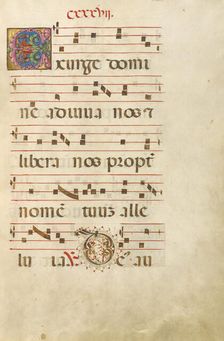 cxxxvii.
Exurge domi
ne adiuva nos et
libera nos propt
nomē tuuz alle
luia. ℣. Deus au